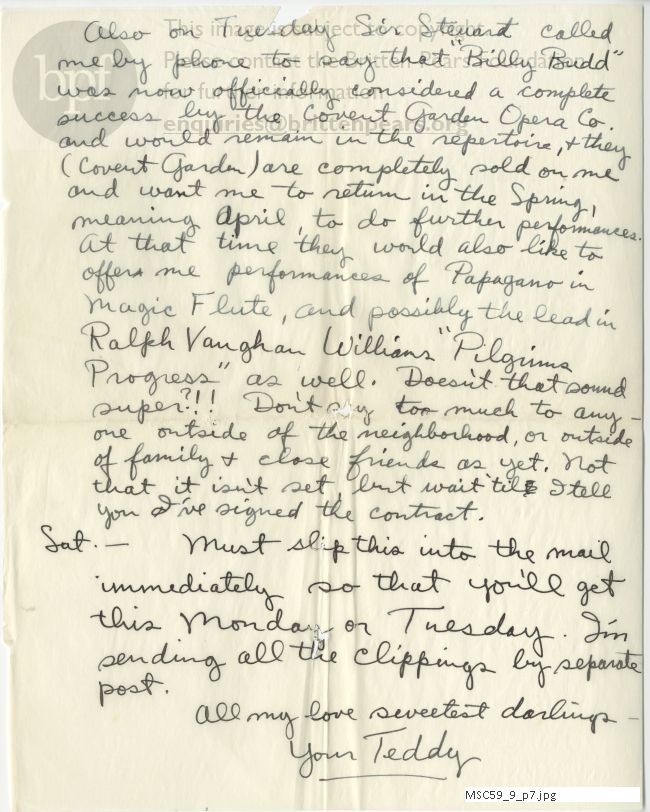 Also on Tuesday Sir Steuart called
me by phone to say that "Billy Budd"
was now officially considered a complete
success by the Covent Garden Opera Co.
and would remain in the repertoire, & they
(Covent Garden) are completely sold on me
and want me to return in the Spring,
meaning April, to do further performances.
At that time they would also like to
offer me performances of Papagano in
Magic Flute, and possibly the lead in
Ralph Vaughan Williams "Pilgrims
Progress" as well. Doesn't that sound
super?!! Don't say too much to any-
one outside of the neighborhood, or outside
of family & close friends as yet. Not
that it isn't set, but wait 'til I tell
you I've signed the contract.
Sat. — Must slip this into the mail
immediately so that you'll get
this Monday or Tuesday. I'm
sending all the clippings by separate
post.
All my love sweetest darlings —
Your Teddy
bpf
This image is subject to copyright
Please contact the Britten-Pears Foundation
for further information
enquiries@brittenpears.org
MSC59_9_p7.jpg